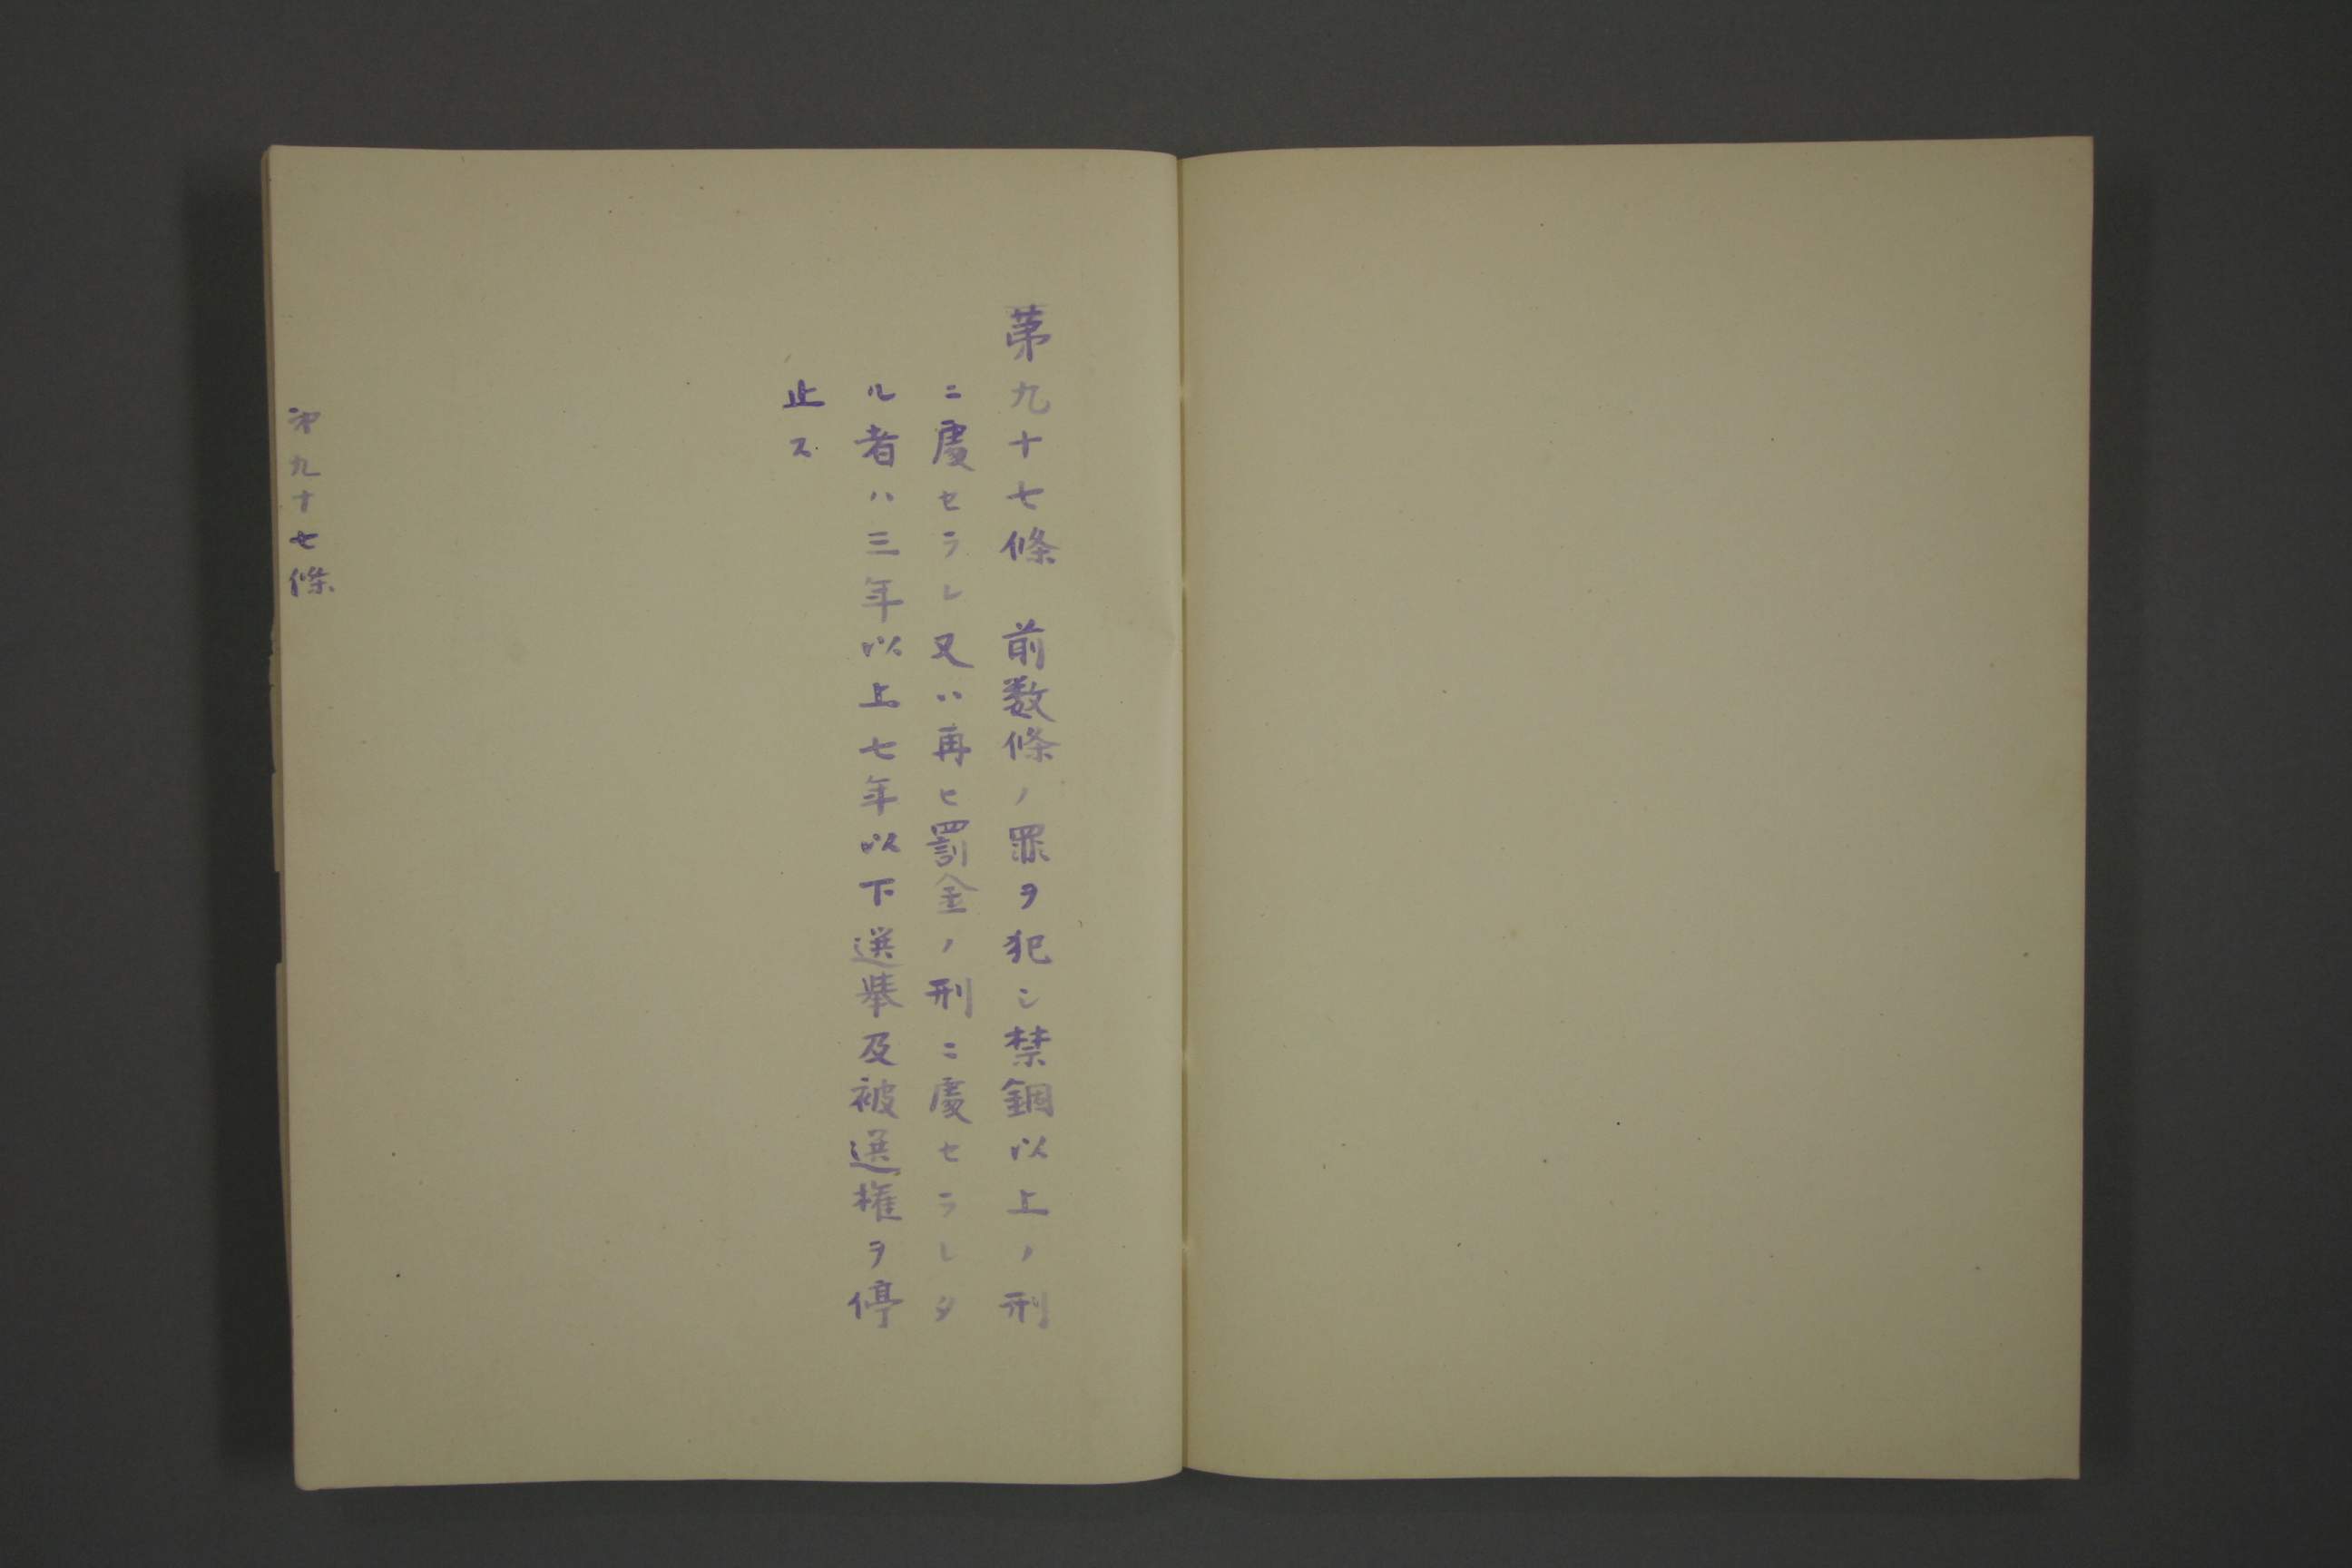 第九十七條　前数條ノ罪ヲ犯シ禁錮以上ノ刑
ニ處セラレ又ハ再ヒ罰金ノ刑ニ處セラレタ
ル者ハ三年以上七年以下選挙及被選権ヲ停
止ス
第九十七條